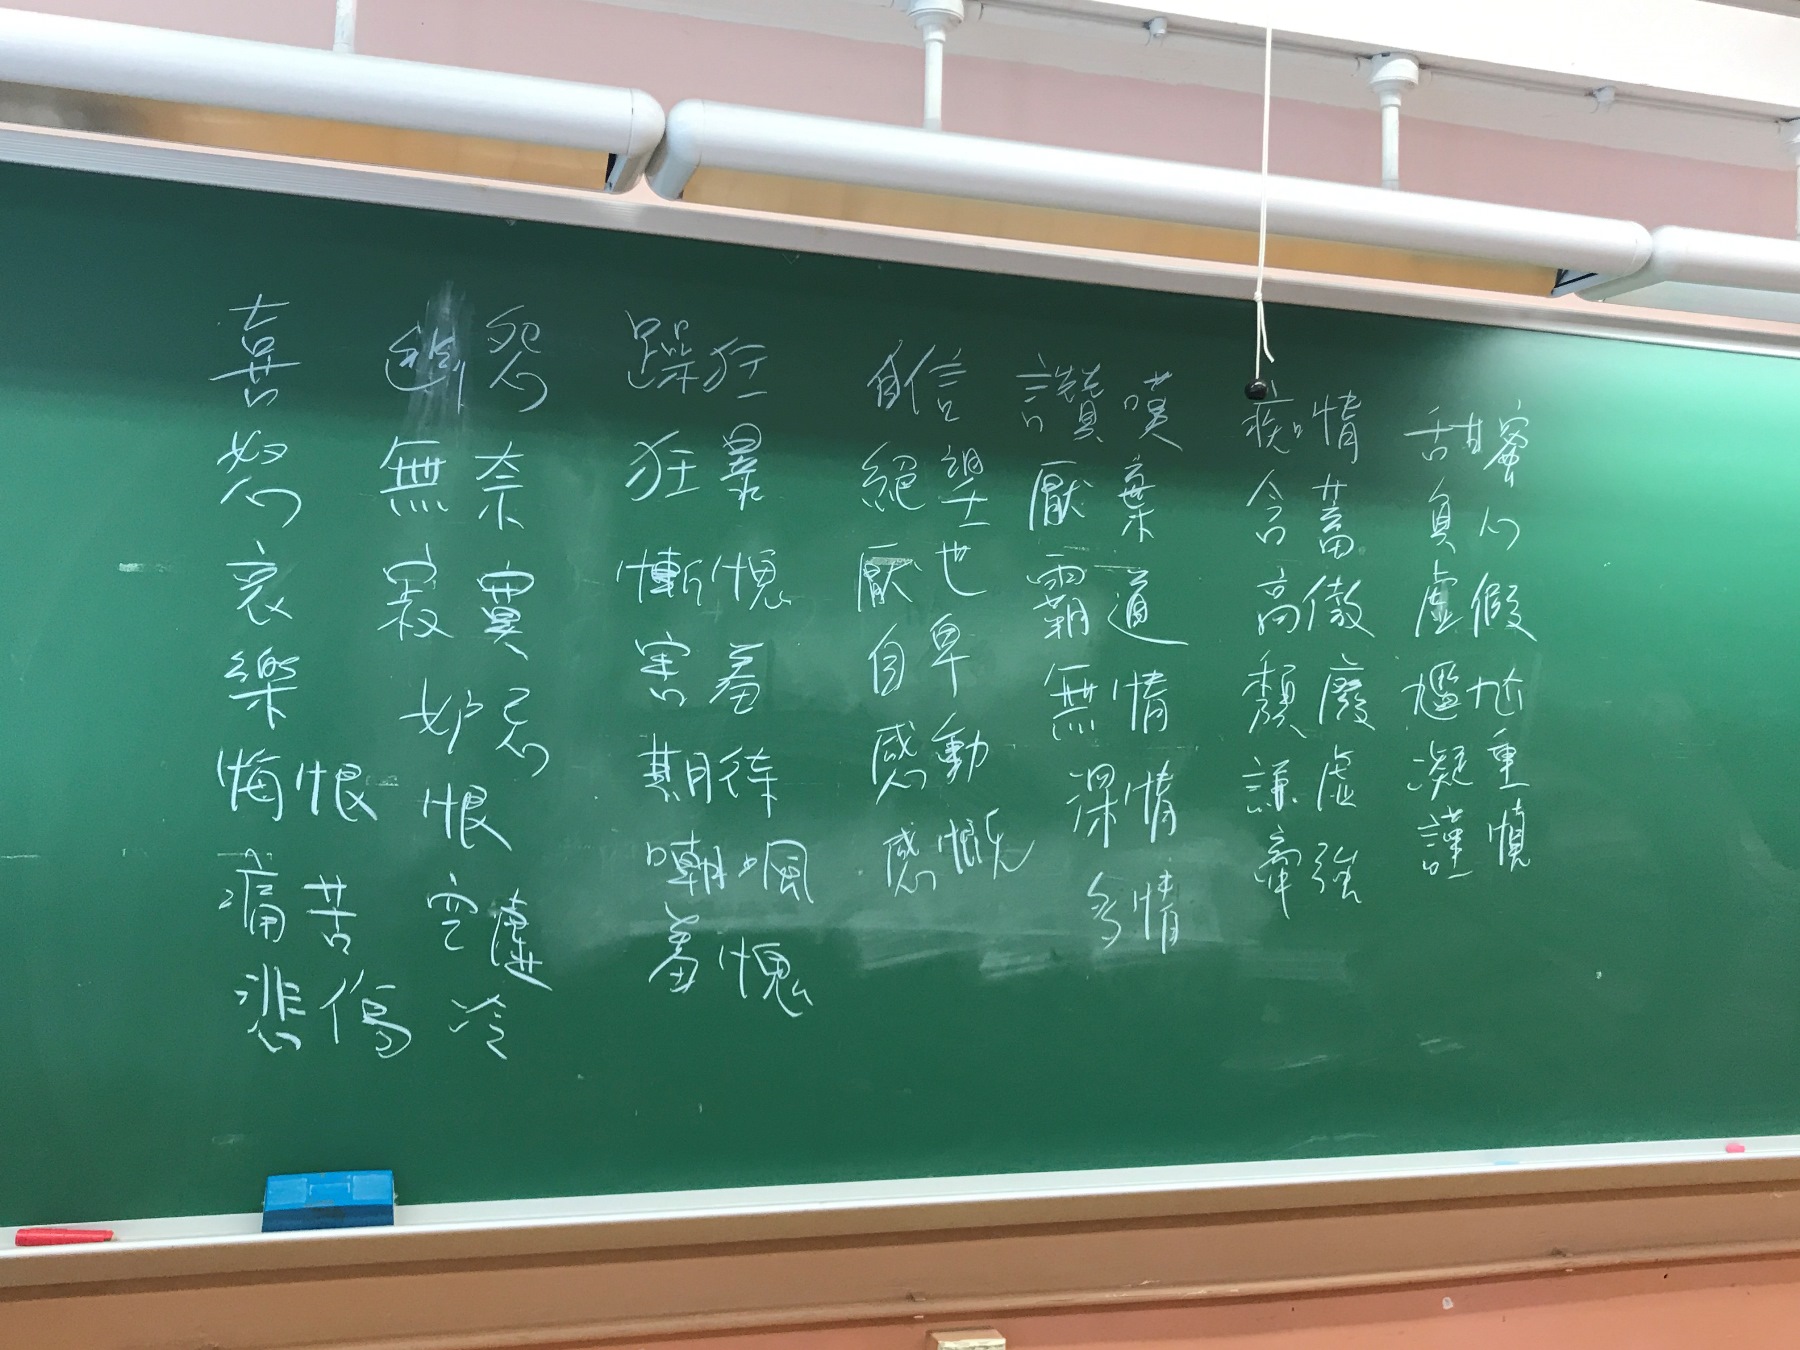 喜
怒
哀
樂
悔恨
痛苦
悲傷
怨
無奈
寂寞
妒忌
恨
空虛
冷
躁狂
狂暴
慚愧
害羞
期待
嘲諷
羞愧
自信
絕望
厭世
自卑
感動
感慨
讚嘆
厭棄
霸道
無情
深情
多情
痴情
含蓄
高傲
頹廢
謙虛
牽強
甜蜜
負心
虛假
尷尬
凝重
謹慎